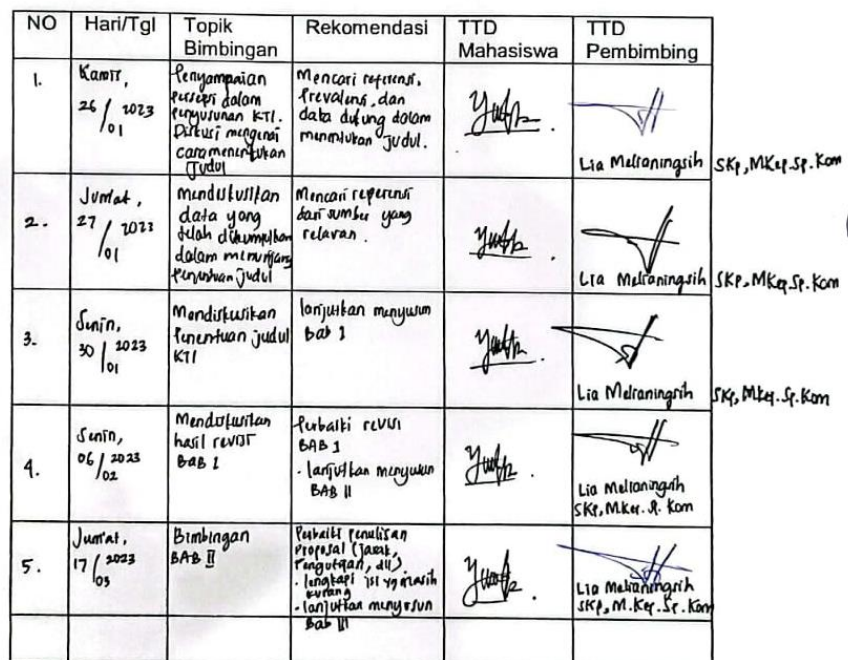 NO Hari/Tgl Topik Bimbingan Rekomendasi TTD Mahasiswa TTD Pembimbing
1.
Kamis,
26/01 2023
Penyampaian
persepsi dalam
penyusunan KTI.
Diskusi mengenai
cara menentukan
Judul
Mencari referensi,
Prevalensi, dan
data dukung dalam
menentukan judul.
Lia Meiraningsih SKp, MKep.Sp.Kom
2.
Jum'at,
27/01 2023
mendiskusikan
data yang
telah dikumpulkan
dalam menunjang
penentuan judul
Mencari reperensi
dari sumber yang
relavan.
Lia Meiraningsih SKp, MKep.Sp.Kom
3.
Senin,
30/01 2023
Mendiskusikan
Penentuan judul
KTI
lanjutkan menyusun
Bab I
Lia Meiraningsih SKp, MKep.Sp.Kom
4.
Senin,
06/02 2023
Mendiskusikan
hasil revisi
BAB I
Perbaiki revisi
BAB I
- lanjutkan menyusun
BAB II
Lia Meiraningsih
SKp, M.Kep.Sp.Kom
5.
Jum'at,
17/03 2023
Bimbingan
BAB II
Perbaiki penulisan
Proposal (Jarak,
Pengutipan, dll)
- lengkapi isi yg masih
kurang
- lanjutkan menyusun
Bab III
Lia Meiraningsih
SKp, M.Kep.Sp.Kom